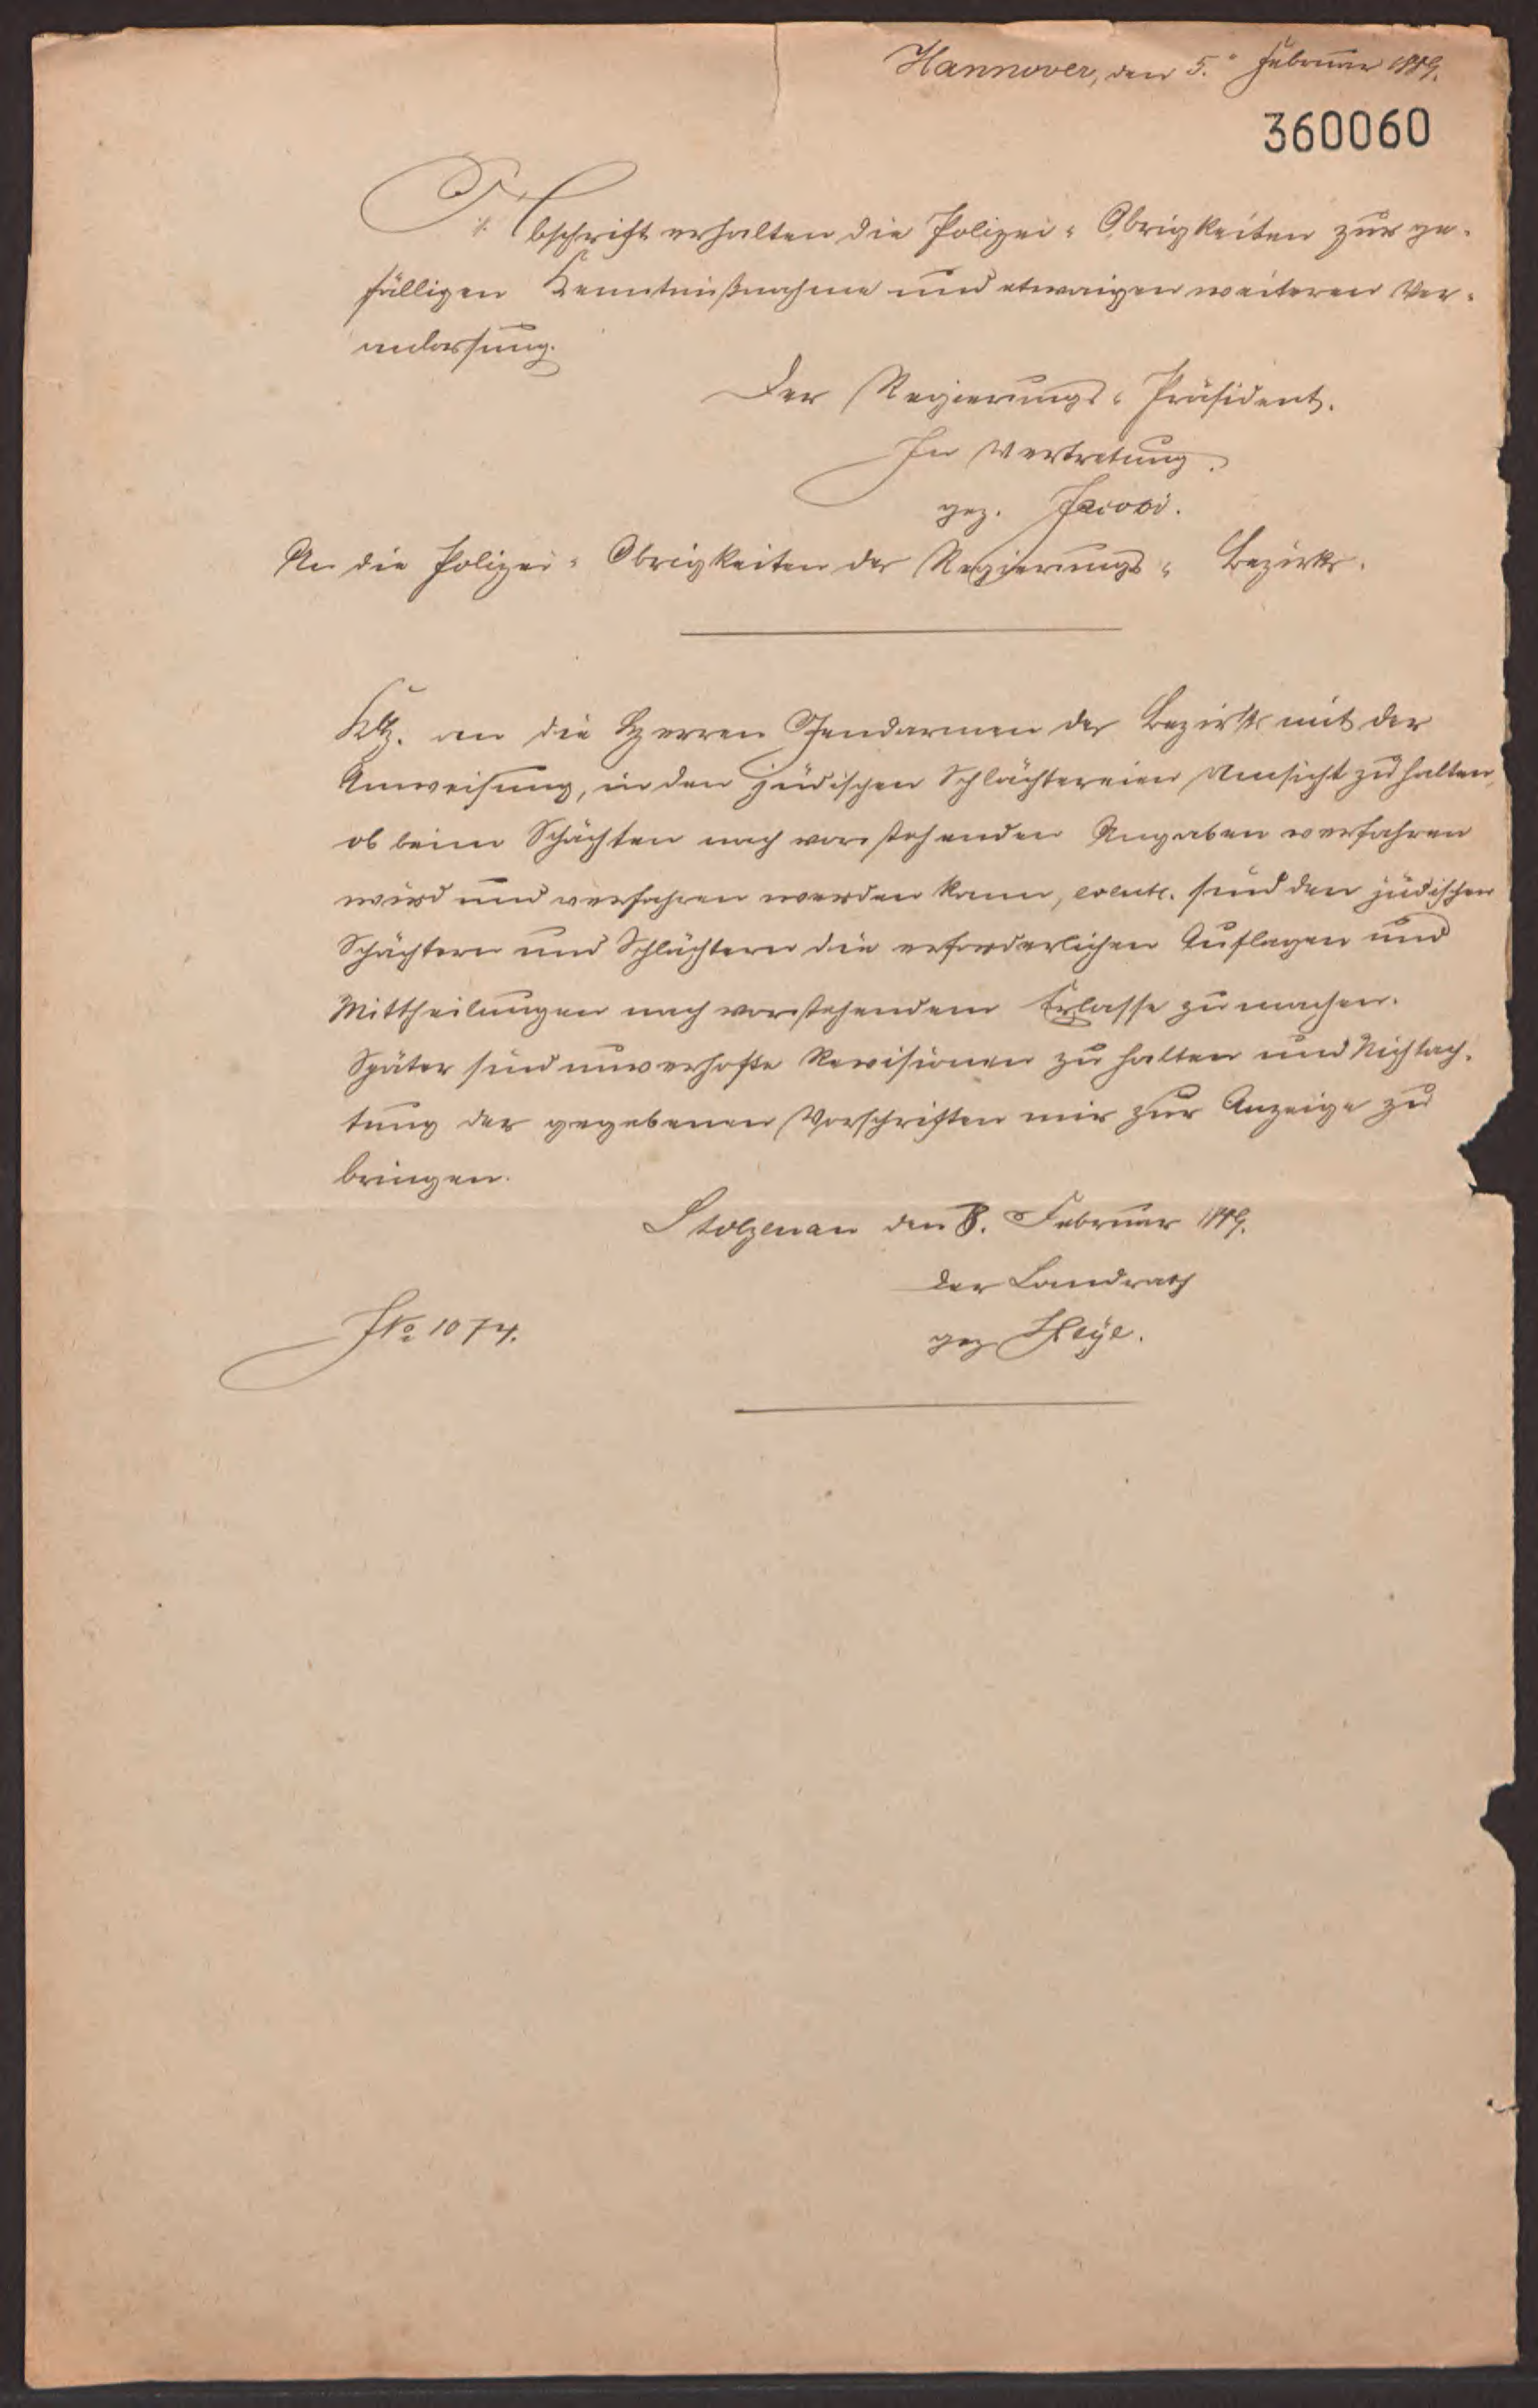 Hannover, den 5. Februar 1889.
360060
Abschrift erhalten die Polizei-Obrigkeiten zur ge-
fälligen Kenntnißnahme und etwaigen weiteren Ver-
anlassung.
Der Regierungs-Präsident.
In Vertretung
gez. Jacobi.
An die Polizei-Obrigkeiten des Regierungs-Bezirks.
an die Herren Gendarmen des Bezirks mit der
Anweisung, in den jüdischen Schlächtereien Umsicht zu halten,
ob beim Schächten nach vorstehenden Angaben verfahren
wird und verfahren werden kann, eventl. sind den jüdischen
Schächtern und Schlächtern die erforderlichen Auflagen und
Mittheilungen nach vorstehendem Erlasse zu machen.
Später sind unverhofte Revisionen zu halten und Nichtach-
tung der gegebenen Vorschriften mir zur Anzeige zu
bringen.
Stolzenau den 8. Februar 1889.
der Landrath
JNo 1074.
gez Heye.